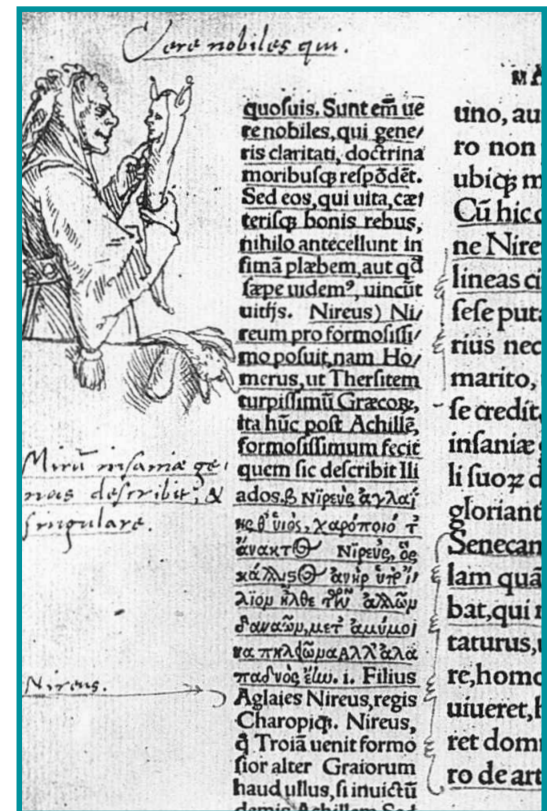 Vere nobiles qui.
quosuis. Sunt em̄ ue
re nobiles, qui gene/
ris claritati, doctrina
moribusq̃ respōdēt.
Sed eos, qui uita, cæt
terisq̃ bonis rebus,
nihilo antecellunt in
fimā plæbem, aut qđ
sæpe uidemꝰ, uincūt
uitijs. Nireus) Ni/
reum pro formosissi/
mo posuit, nam Ho/
merus, ut Thersitem
turpissimū Græcoꝝ,
ita hūc post Achillē,
formosissimum fecit
quem sic describit Ili
ados. β Νῖρευς ἀγλαΐ
ης θ' υἱὸς, χαρόποιό τ'
ἄνακτος Νῖρευς, ὃς
κάλλιστος ἀνὴρ ὑπὸ ἴ/
λιον ἦλθε τῶν ἄλλων
δαναῶν, μετ' ἀμύμο
να πηλείωνα Αλλ' ἀλα
παδνὸς ἔην. i. Filius
Aglaies Nireus, regis
Charopiq̃. Nireus,
q̃ Troiā uenit formo
sior alter Graiorum
haud ullus, si inuictū
demis Achillem Sed
Mirū insaniæ ge-
nus describit; &
singulare.
Nireus.
MA
uno, au
ro non
ubiq̃ m
Cū hic
ne Nire
lineas ci
sese puta
rius nec
marito,
se credit
insaniæ
li suoꝝ d
gloriant
Senecam
lam quā
bat, qui r
taturus,
re, homo
uiueret, h
ret dom
ro de art